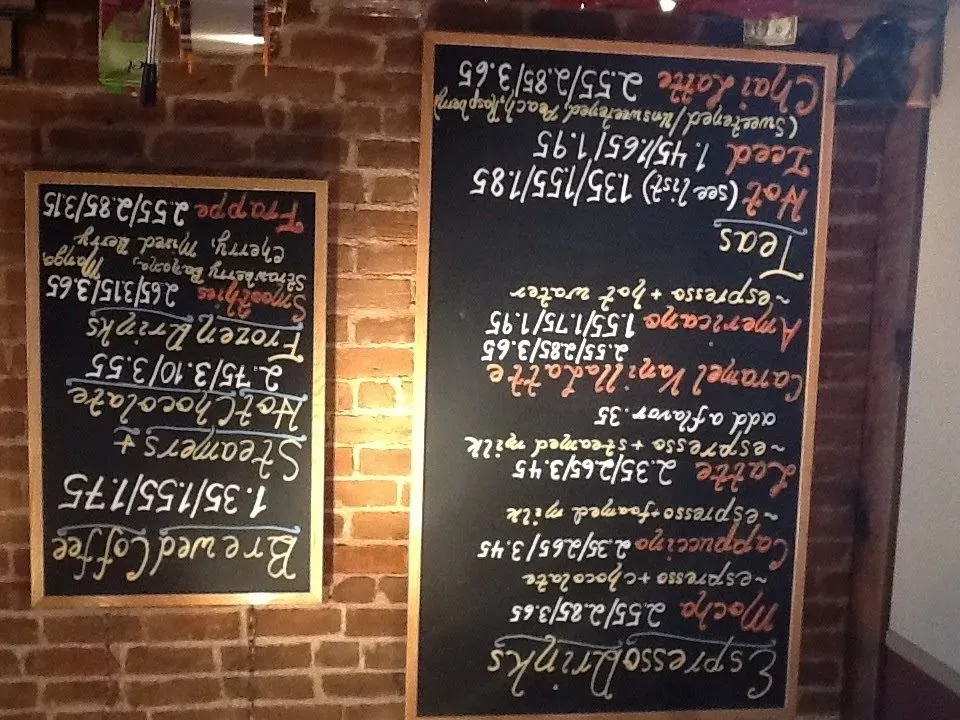 Espresso Drinks
Mocha 2.55/2.85/3.65
~espresso + chocolate
Cappuccino 2.35/2.65/3.45
~espresso + foamed milk
Latte 2.35/2.65/3.45
~espresso + steamed milk
add a flavor .35
Caramel Vanilla Latte
2.55/2.85/3.65
Americano 1.55/1.75/1.95
~espresso + hot water
Teas
Hot (see list) 1.35/1.55/1.85
Iced 1.45/1.65/1.95
(Sweetened/Unsweetened, Peach, Raspberry)
Chai Latte 2.55/2.85/3.65
Brewed Coffee
1.35/1.55/1.75
Steamers +
Hot Chocolate
2.75/3.10/3.55
Frozen Drinks
Smoothies 2.65/3.15/3.65
Strawberry Banana, Mango,
Cherry, Mixed Berry
Frappe 2.55/2.85/3.15